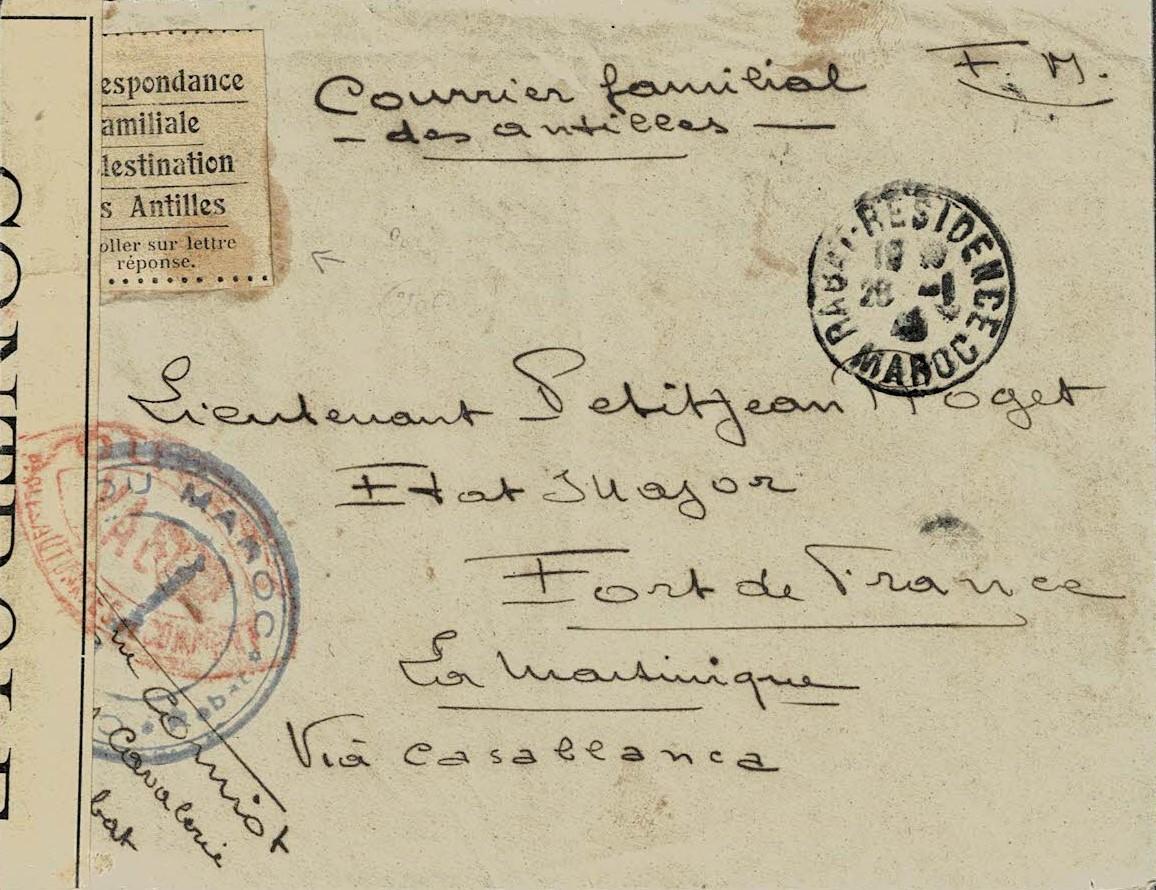 CONTROLE
espondance
amiliale
destination
s Antilles
oller sur lettre
réponse.
Courrier familial
- des antilles -
F. M.
RABAT-RESIDENCE
28 -1
MAROC
Lieutenant Petitjean Roget
Etat Major
Fort de France
La Martinique
Viâ Casablanca
DU MAROC
Rabat
Cavalerie
bat